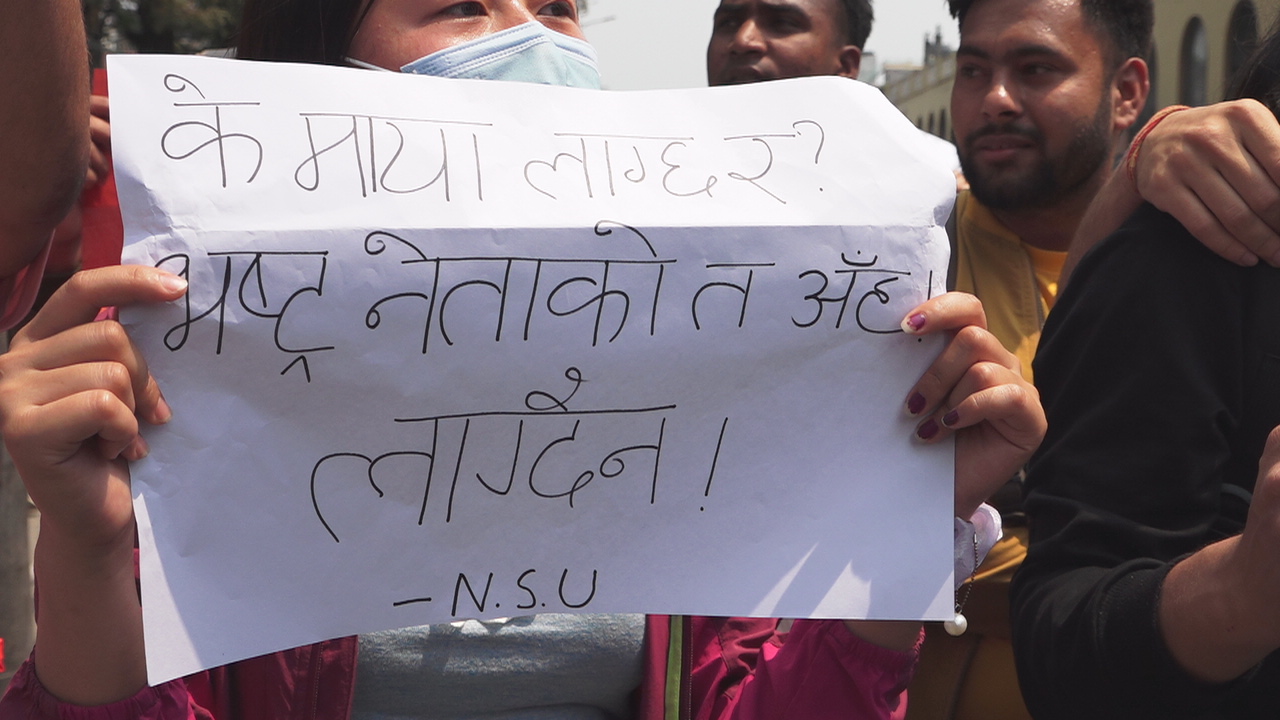 के माया लाग्छ र?
भ्रष्ट नेताको त अँह!
लाग्दैन !
- N.S.U